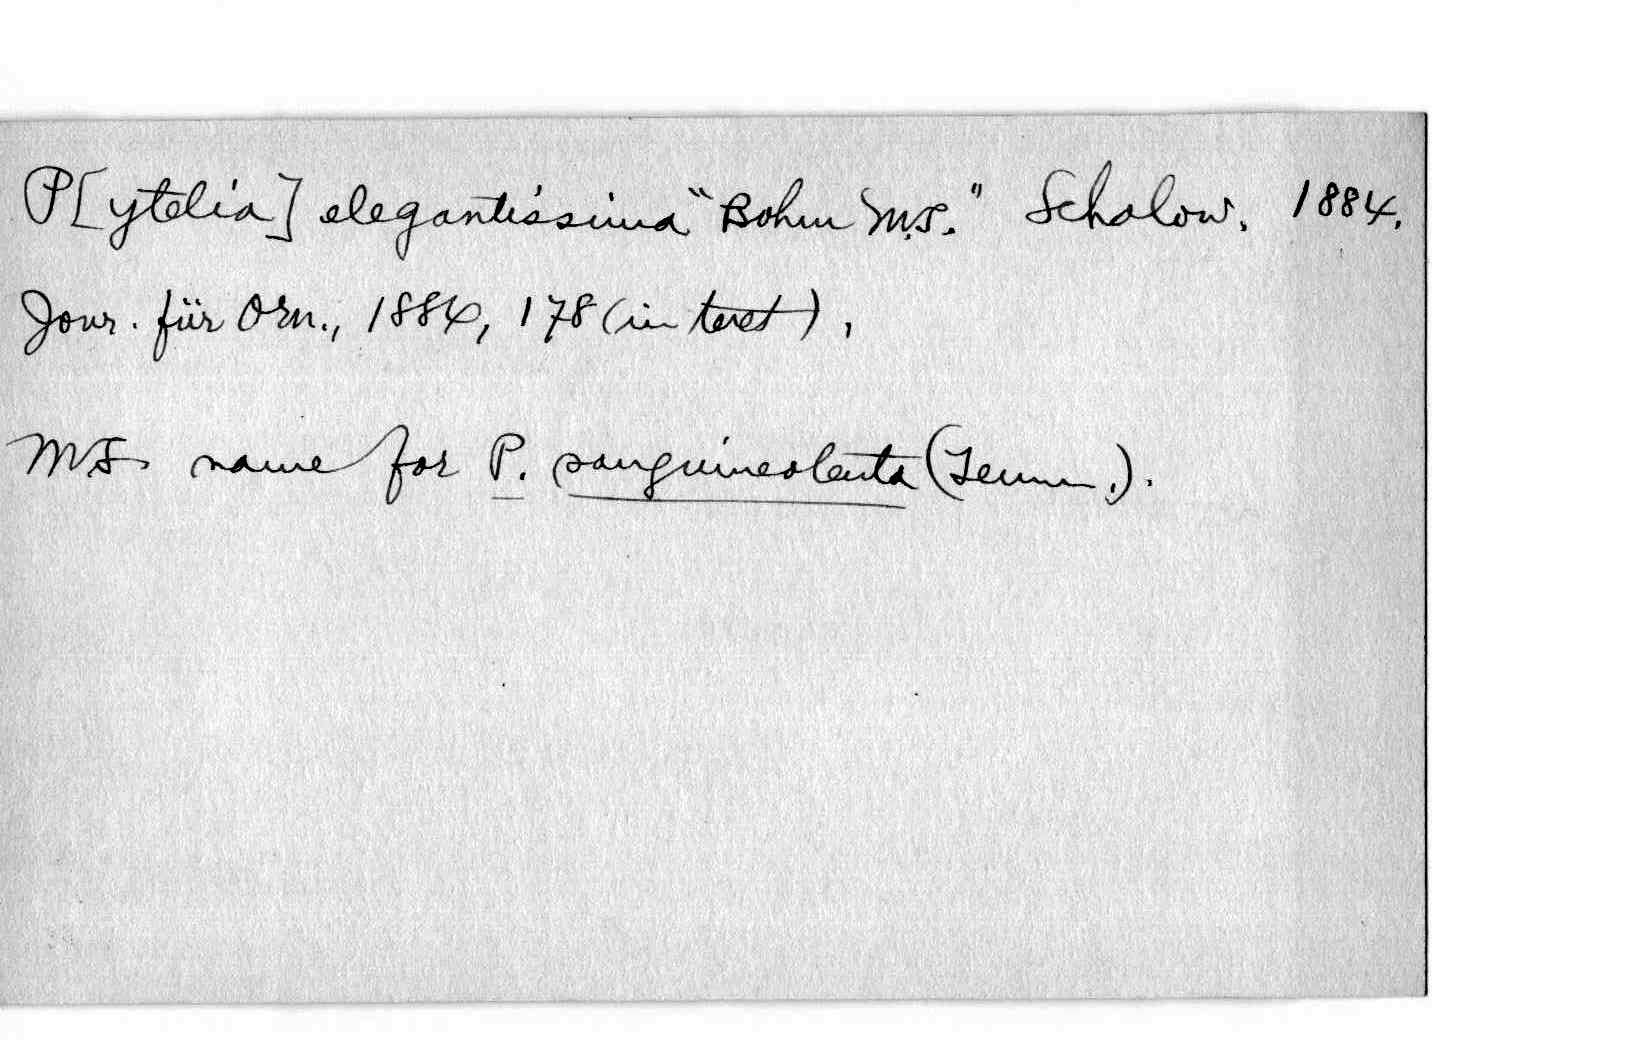 P[ytelia] elegantissima "Bohm MS." Schalow. 1884.
Jour. für Orn., 1884, 178 (in text).
MS. name for P. sanguineolenta (Temm.).